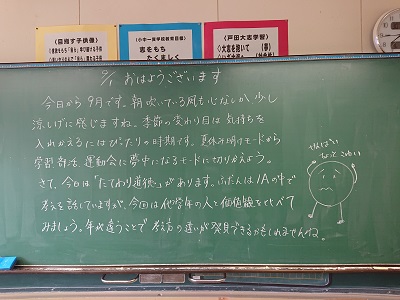 目指す子供像
小中一貫学校教育目標
志をもち
たくましく
戸田大志学習
9/1 おはようございます
今日から9月です。朝吹いている風も心なしか少し
涼しげに感じますね。季節の変わり目は気持ちを
入れかえるにはぴったりの時期です。夏休み明けモードから
学習・行事、運動会に夢中になるモードに切りかえよう。
さて、今日は「たてわり道徳」があります。ふだんは1Aの中で
考えを話していますが、今回は他学年の人と価値観を比べて
みましょう。年が違うことで考え方の違いが発見できるかもしれませんね。
せんぱい
なんて こわい